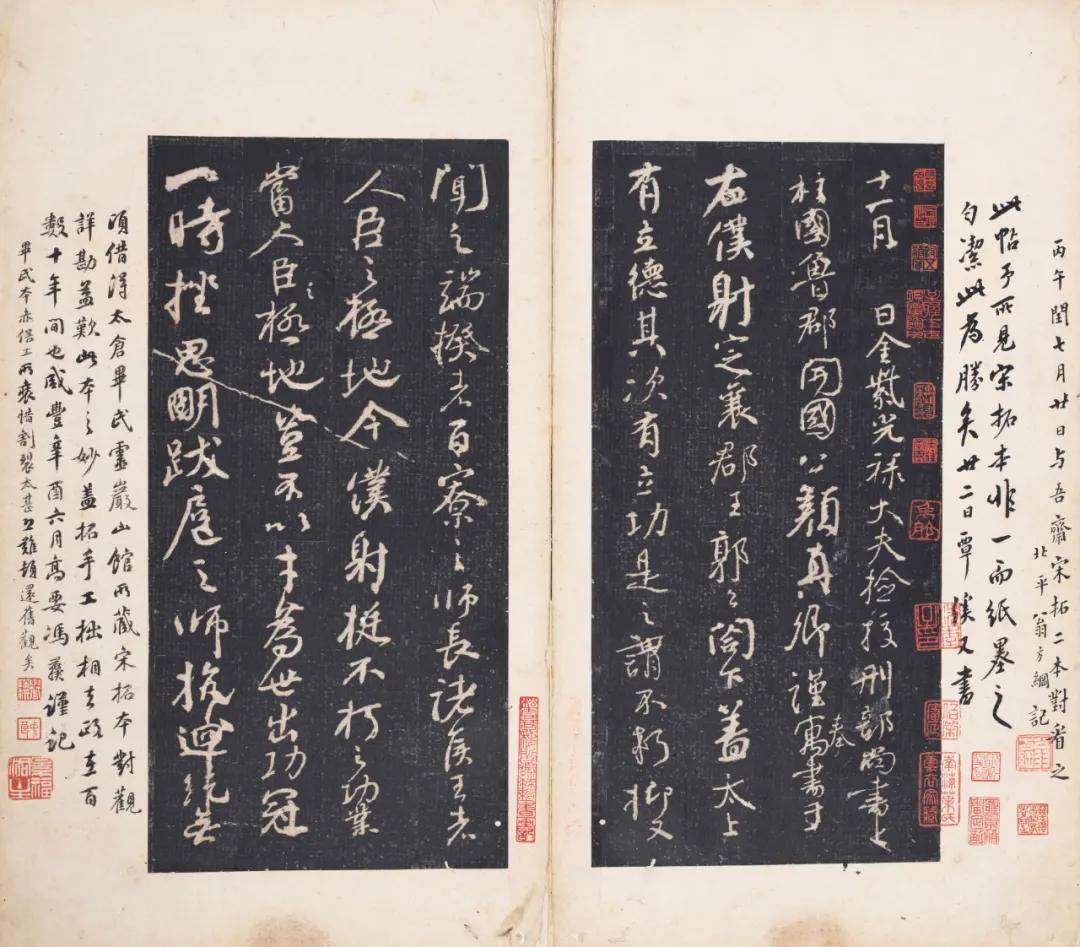 丙午閏七月廿日与吾齋宋拓二本對看之
北平翁方綱記
此帖予所見宋拓本非一而紙墨之
勻潔此為勝矣廿二日覃溪又書
十一月 日金紫光祿大夫撿挍刑部尚書上
柱國魯郡開國公顏真卿謹奉寓書于
右僕射定襄郡王郭公閤下蓋太上
有立德其次有立功是之謂不朽抑又
聞之端揆者百寮之師長諸侯王者
人臣之極地今僕射挺不朽之功業
當人臣之極地豈不以才為世出功冠
一時挫思明跋扈之師抗迴紇無
頃借得太倉畢氏靈巖山館所藏宋拓本對觀
詳勘益歎此本之妙蓋拓手工拙相去政在百
數十年間也咸豐辛酉六月高要馮謹記
畢氏本亦俗工所裝惜割裂太甚難頓還舊觀矣